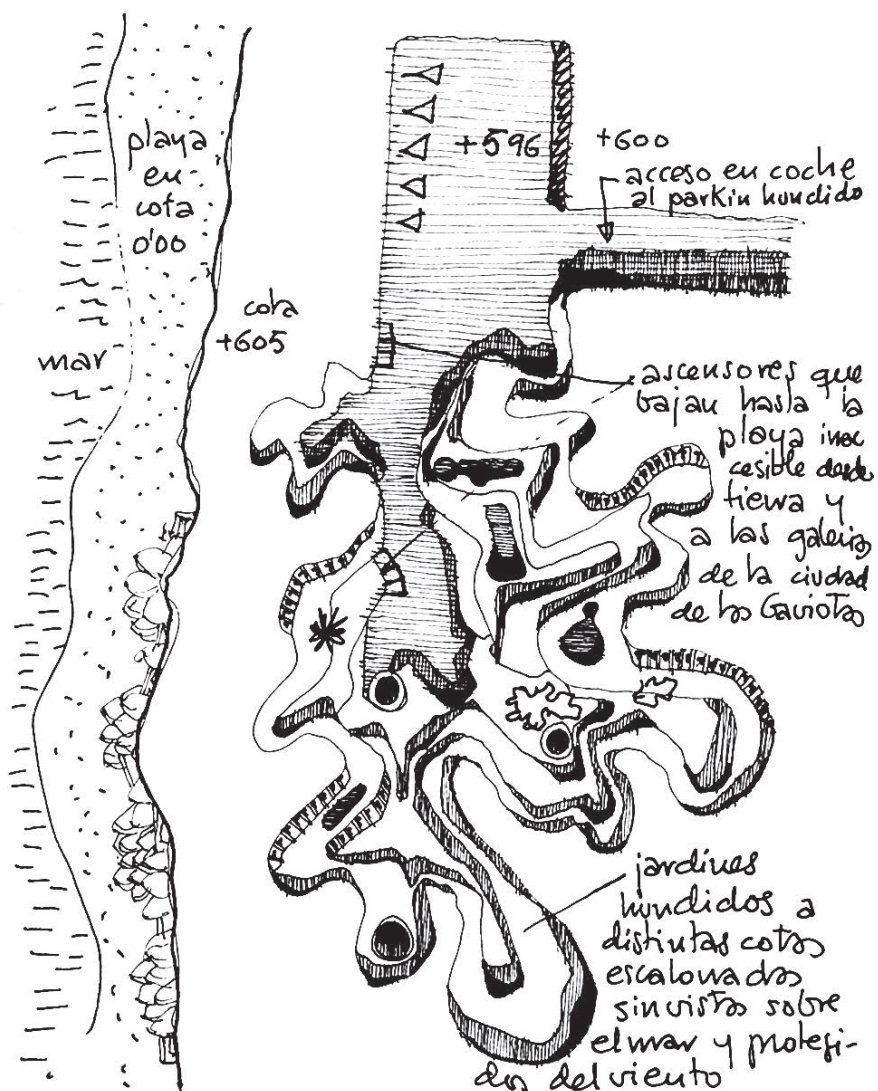 playa
en
cota
0'00
mar
cota
+605
+596
+600
acceso en coche
al parkin hundido
ascensores que
bajan hasta la
playa inac
cesible desde
tierra y
a las galerias
de la ciudad
de las Gaviotas
jardines
hundidos a
distintas cotas
escalonadas
sin vistas sobre
el mar y protegi-
dos del viento